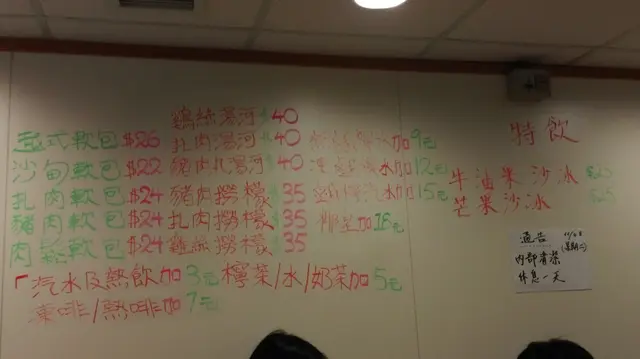 鷄絲湯河$40
法式軟包$26 扎肉湯河$40 加9元
沙甸軟包$22 豬肉扎湯河$40 水加12元
扎肉軟包$24 豬肉撈檬$35 水加15元
豬肉軟包$24 扎肉撈檬$35 椰皇加16元
肉鬆軟包$24 雞絲撈檬$35
「汽水及熱飲加3元 檸茶/水/奶茶加5元
凍啡/熱啡加7元
特飲
牛油果沙冰 $25
芒果沙冰 $25
通告
(星期二)
內部清潔
休息一天